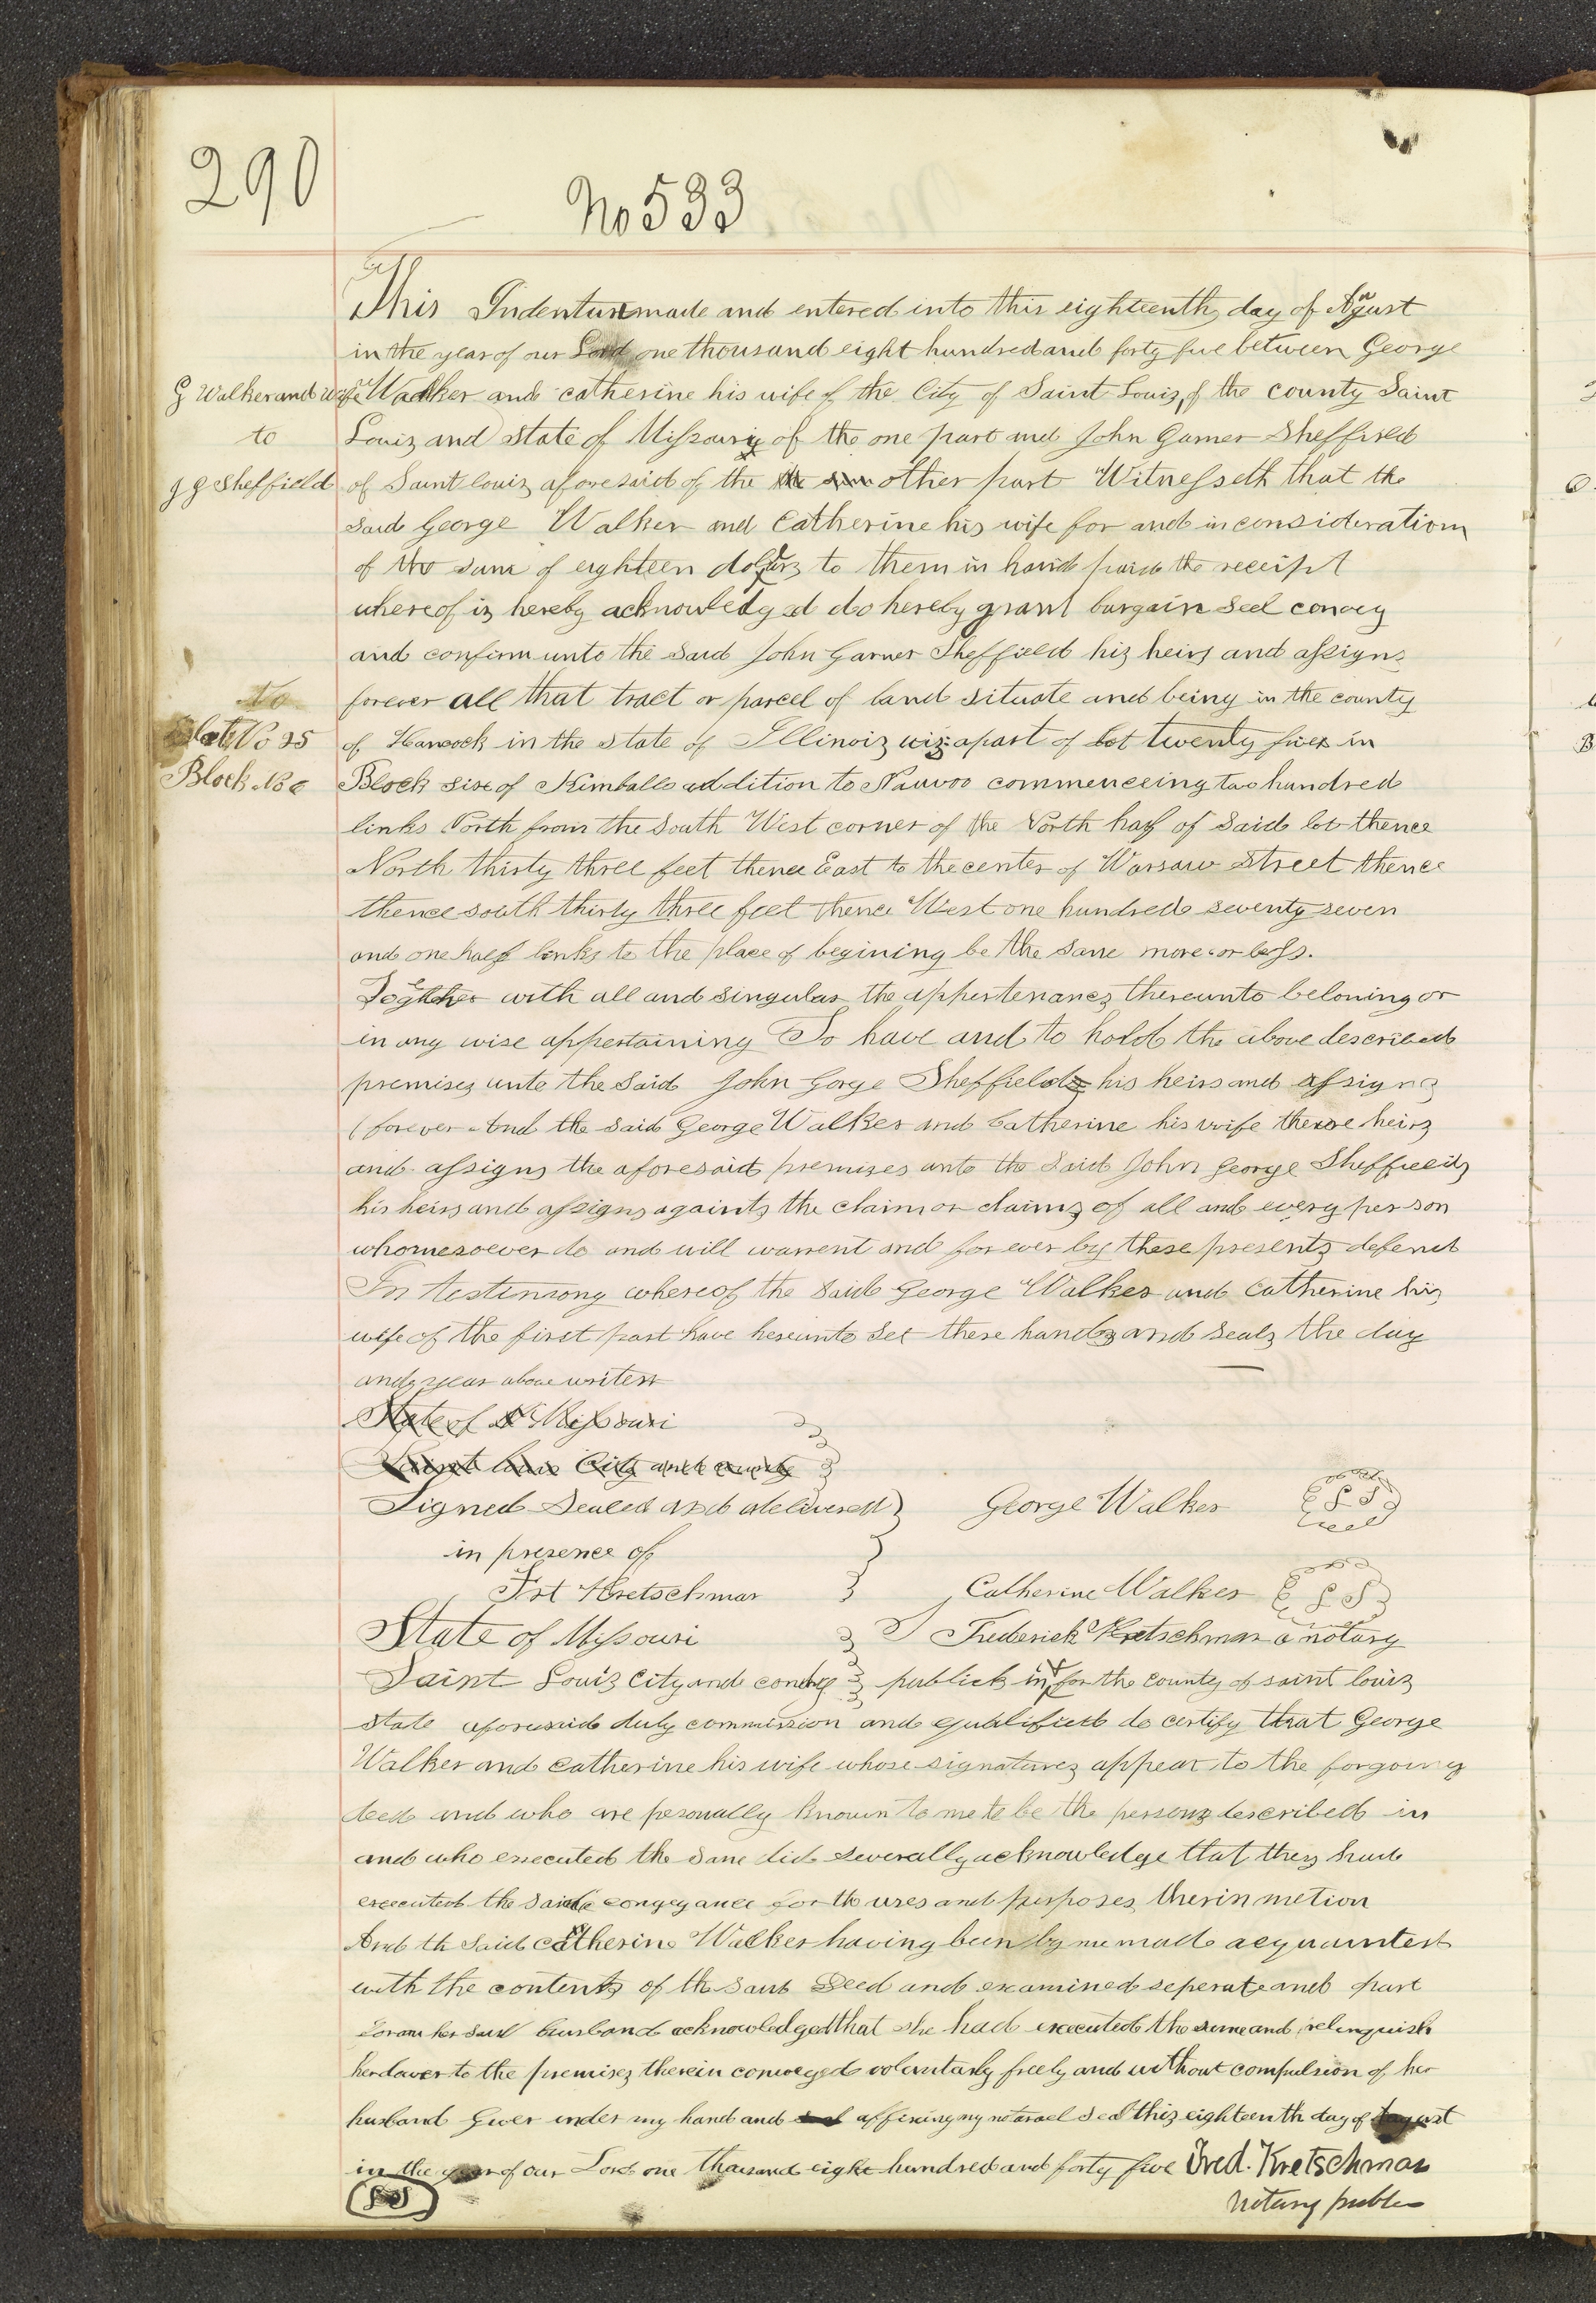 290
No 533
This Indenture made and entered into this eighteenth day of August
in the year of our Lord one thousand eight hundred and forty five between George
G Walker and wife
Walker and catherine his wife of the City of Saint Louis, of the county Saint
to
Louis and state of Missouri of the one part and John Garner Sheffield
J G Sheffield
of Saint louis aforesaid of the the other part Witnesseth that the
said George Walker and Catherine his wife for and in consideration
of the sum of eighteen dollars to them in hand paid the receipt
whereof is hereby acknowledged do hereby grant bargain seel convey
and confirm unto the said John Garner Sheffield his heirs and assigns
No
forever all that tract or parcel of land situate and being in the county
Lot No 25
of Hancock in the state of Illinois viz apart of lot twenty five in
Block No 6
Block six of Kimballs addition to Nauvoo commenceing two hundred
links North from the South West corner of the North half of said lot thence
North thirty three feet thence East to the center of Warsaw street thence
thence south thirty three feet thence West one hundred seventy seven
and one half links to the place of begining be the same more or less.
Together with all and singular the appertenances thereunto beloning or
in any wise appertaining To have and to hold the above described
premises unto the said John Gorge Sheffield his heirs and assigns
forever And the said George Walker and Catherine his wife there heirs
and assigns the aforesaid premises unto the said John George Sheffield
his heirs and assigns againts the claim or claims of all and every person
whomesoever do and will warrent and for ever by these presents defend
In testimony whereof the said George Walker and Catherine his
wife of the first part have hereunto set there hands and seals the day
and year above writen
State of Missouri
Saint louis City and county
Signed Sealed and delivered George Walker LS
in presence of
Frt Kretschmar Catherine Walker LS
State of Missouri I Frederick Kretschmar a notary
Saint Louis City and county publick in & for the county of saint louis
state aforesaid duly commission and qualified do certify that George
Walker and Catherine his wife whose signatures appear to the forgoing
deed and who are personally known to me to be the persons described in
and who executed the same did severally acknowledge that they had
executed the said conveyance for th uses and purposes therin metion
And th said catherine Walker having been by me made acquainted
with the contents of th said Deed and examined seperate and part
from her said husband acknowledged that she had executed the same and relinquish
her dower to the premises therein conveyed voluntarly freely and without compulsion of her
husband Given under my hand and affixing my notarael seal this eighteenth day of August
in the year of our Lord one thousand eight hundred and forty five Fred. Kretschmar
LS Notary public